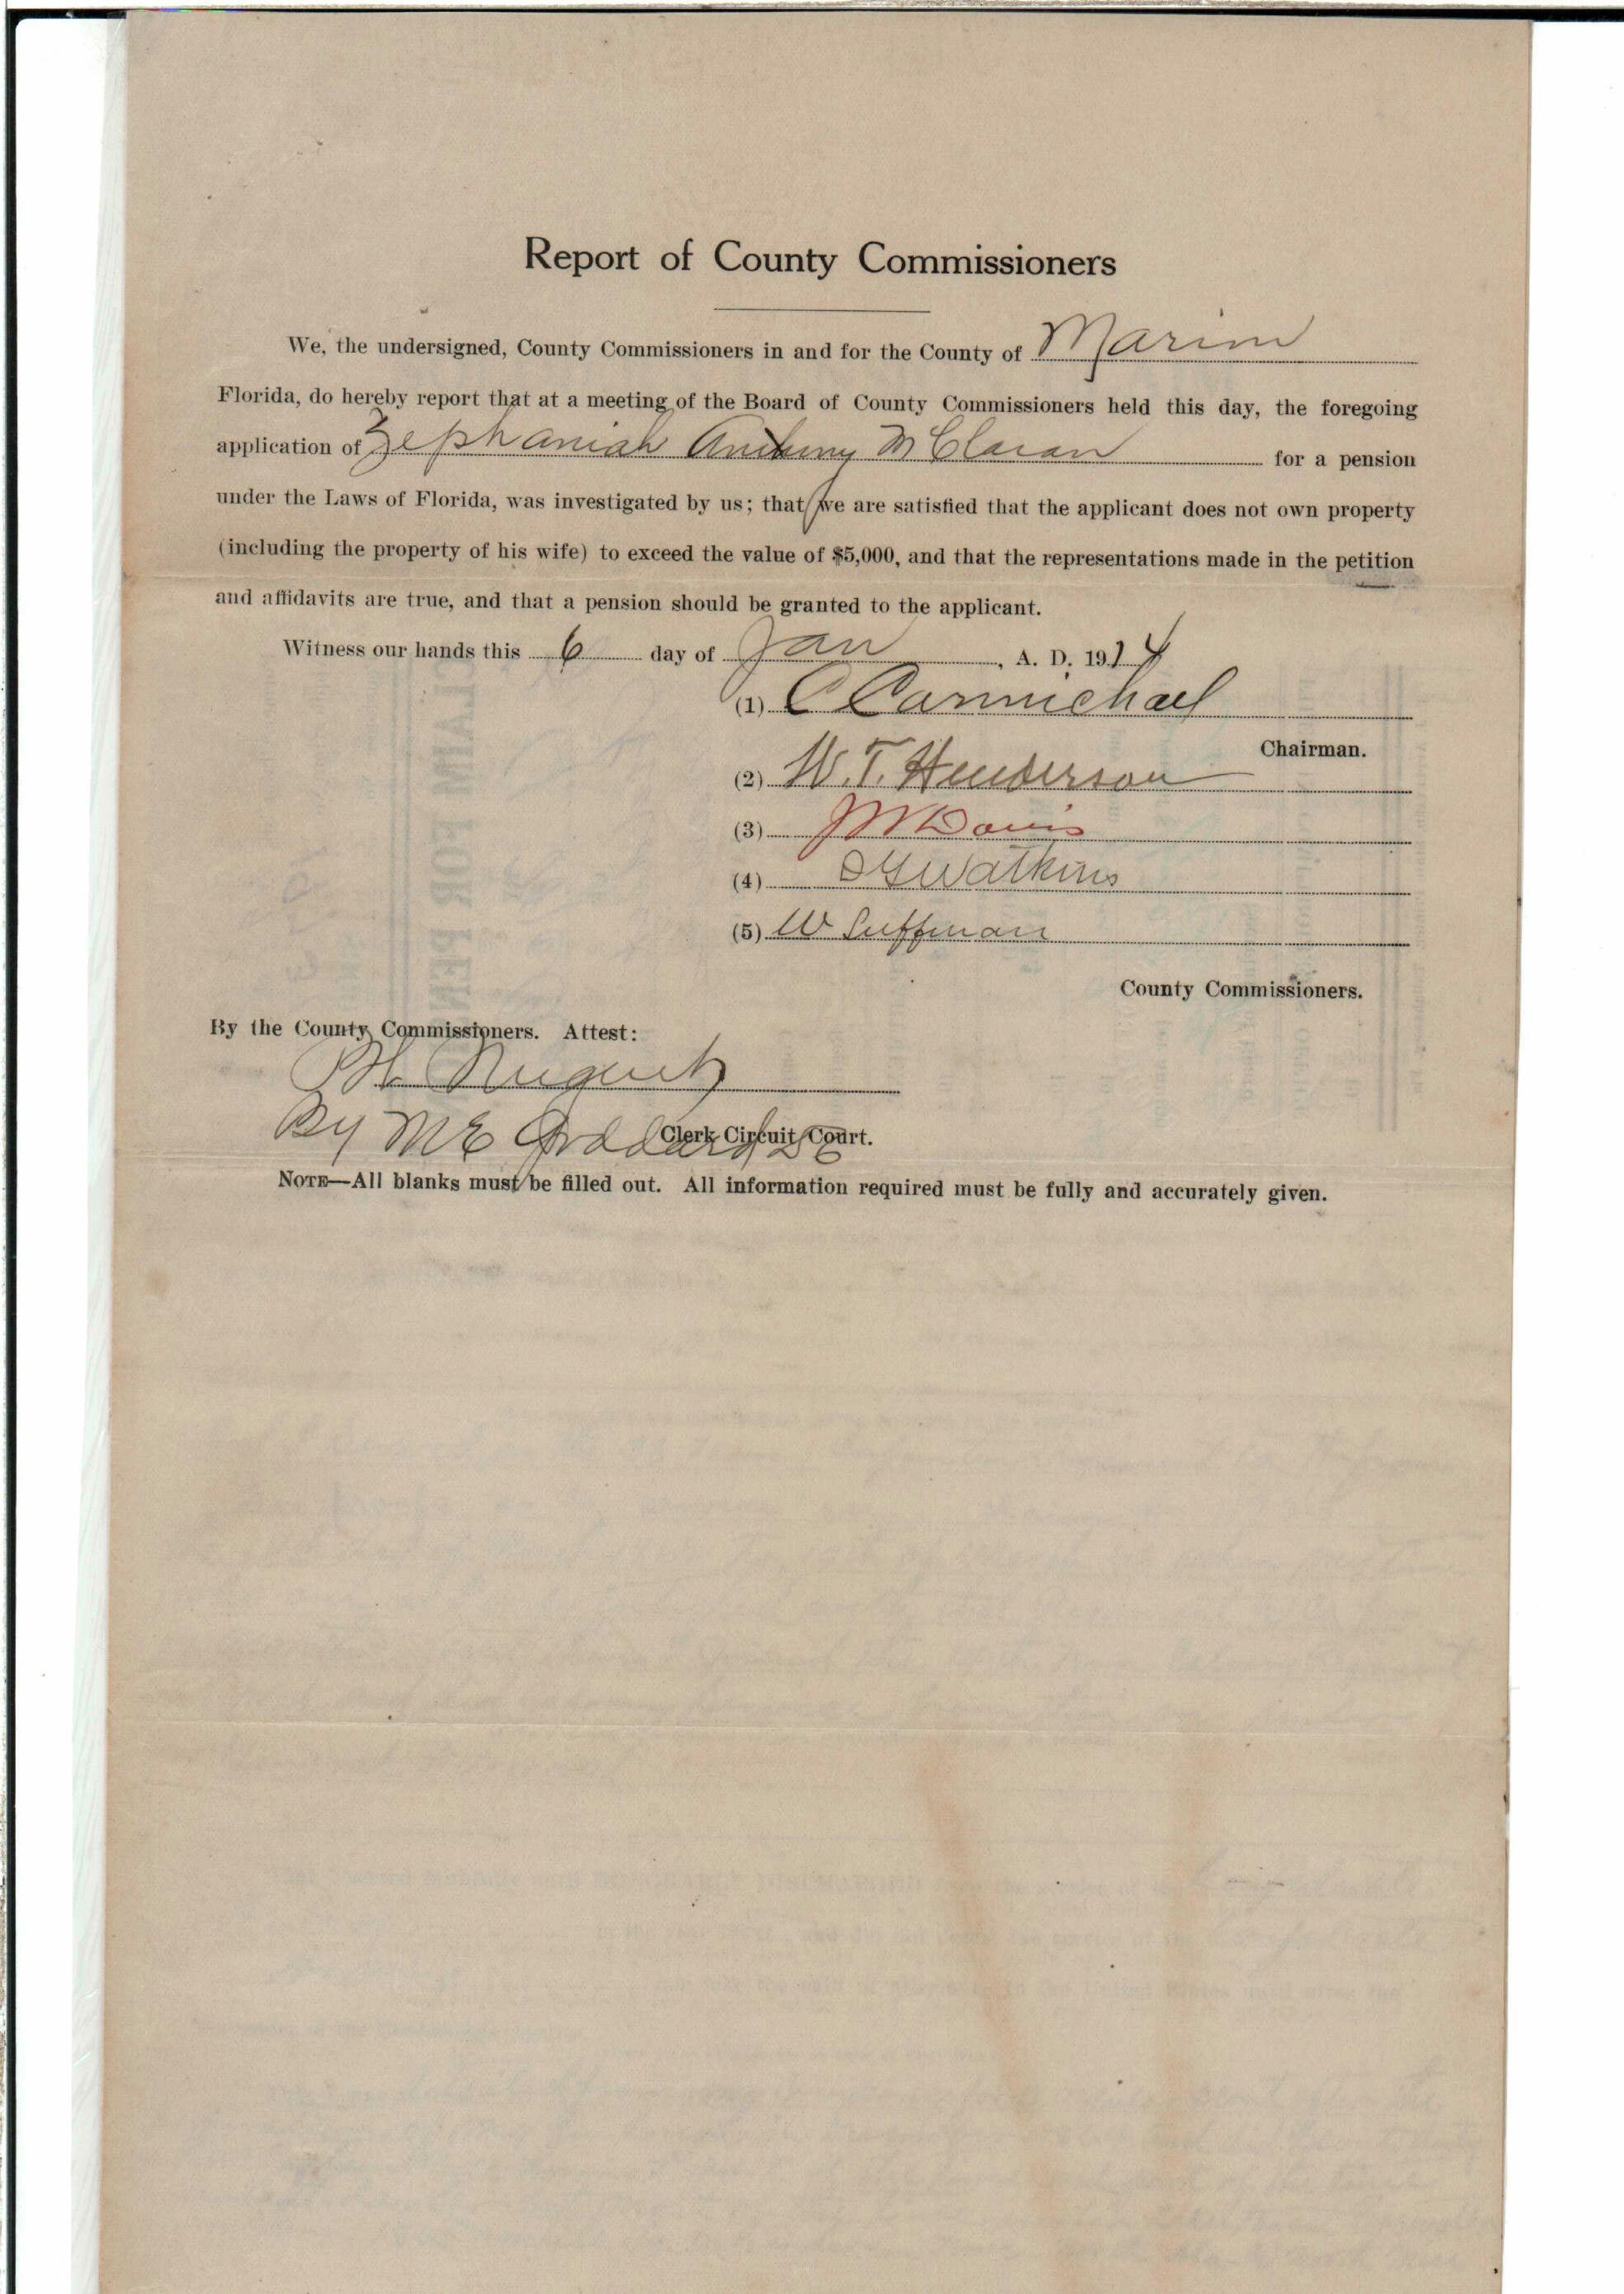 Report of County Commissioners
We, the undersigned, County Commissioners in and for the County of Marion
Florida, do hereby report that at a meeting of the Board of County Commissioners held this day, the foregoing
application of Zephaniah Anthony McClaran for a pension
under the Laws of Florida, was investigated by us; that we are satisfied that the applicant does not own property
(including the property of his wife) to exceed the value of $5,000, and that the representations made in the petition
and affidavits are true, and that a pension should be granted to the applicant.
Witness our hands this 6 day of Jan, A. D. 1914
(1) C Carmichael
Chairman.
(2) W. T. Henderson
(3) JM Davis
(4) Watkins
(5) W Luffman
County Commissioners.
By the County Commissioners. Attest:
Nugent
By ME Goddard DC
Clerk Circuit Court.
NOTE—All blanks must be filled out. All information required must be fully and accurately given.